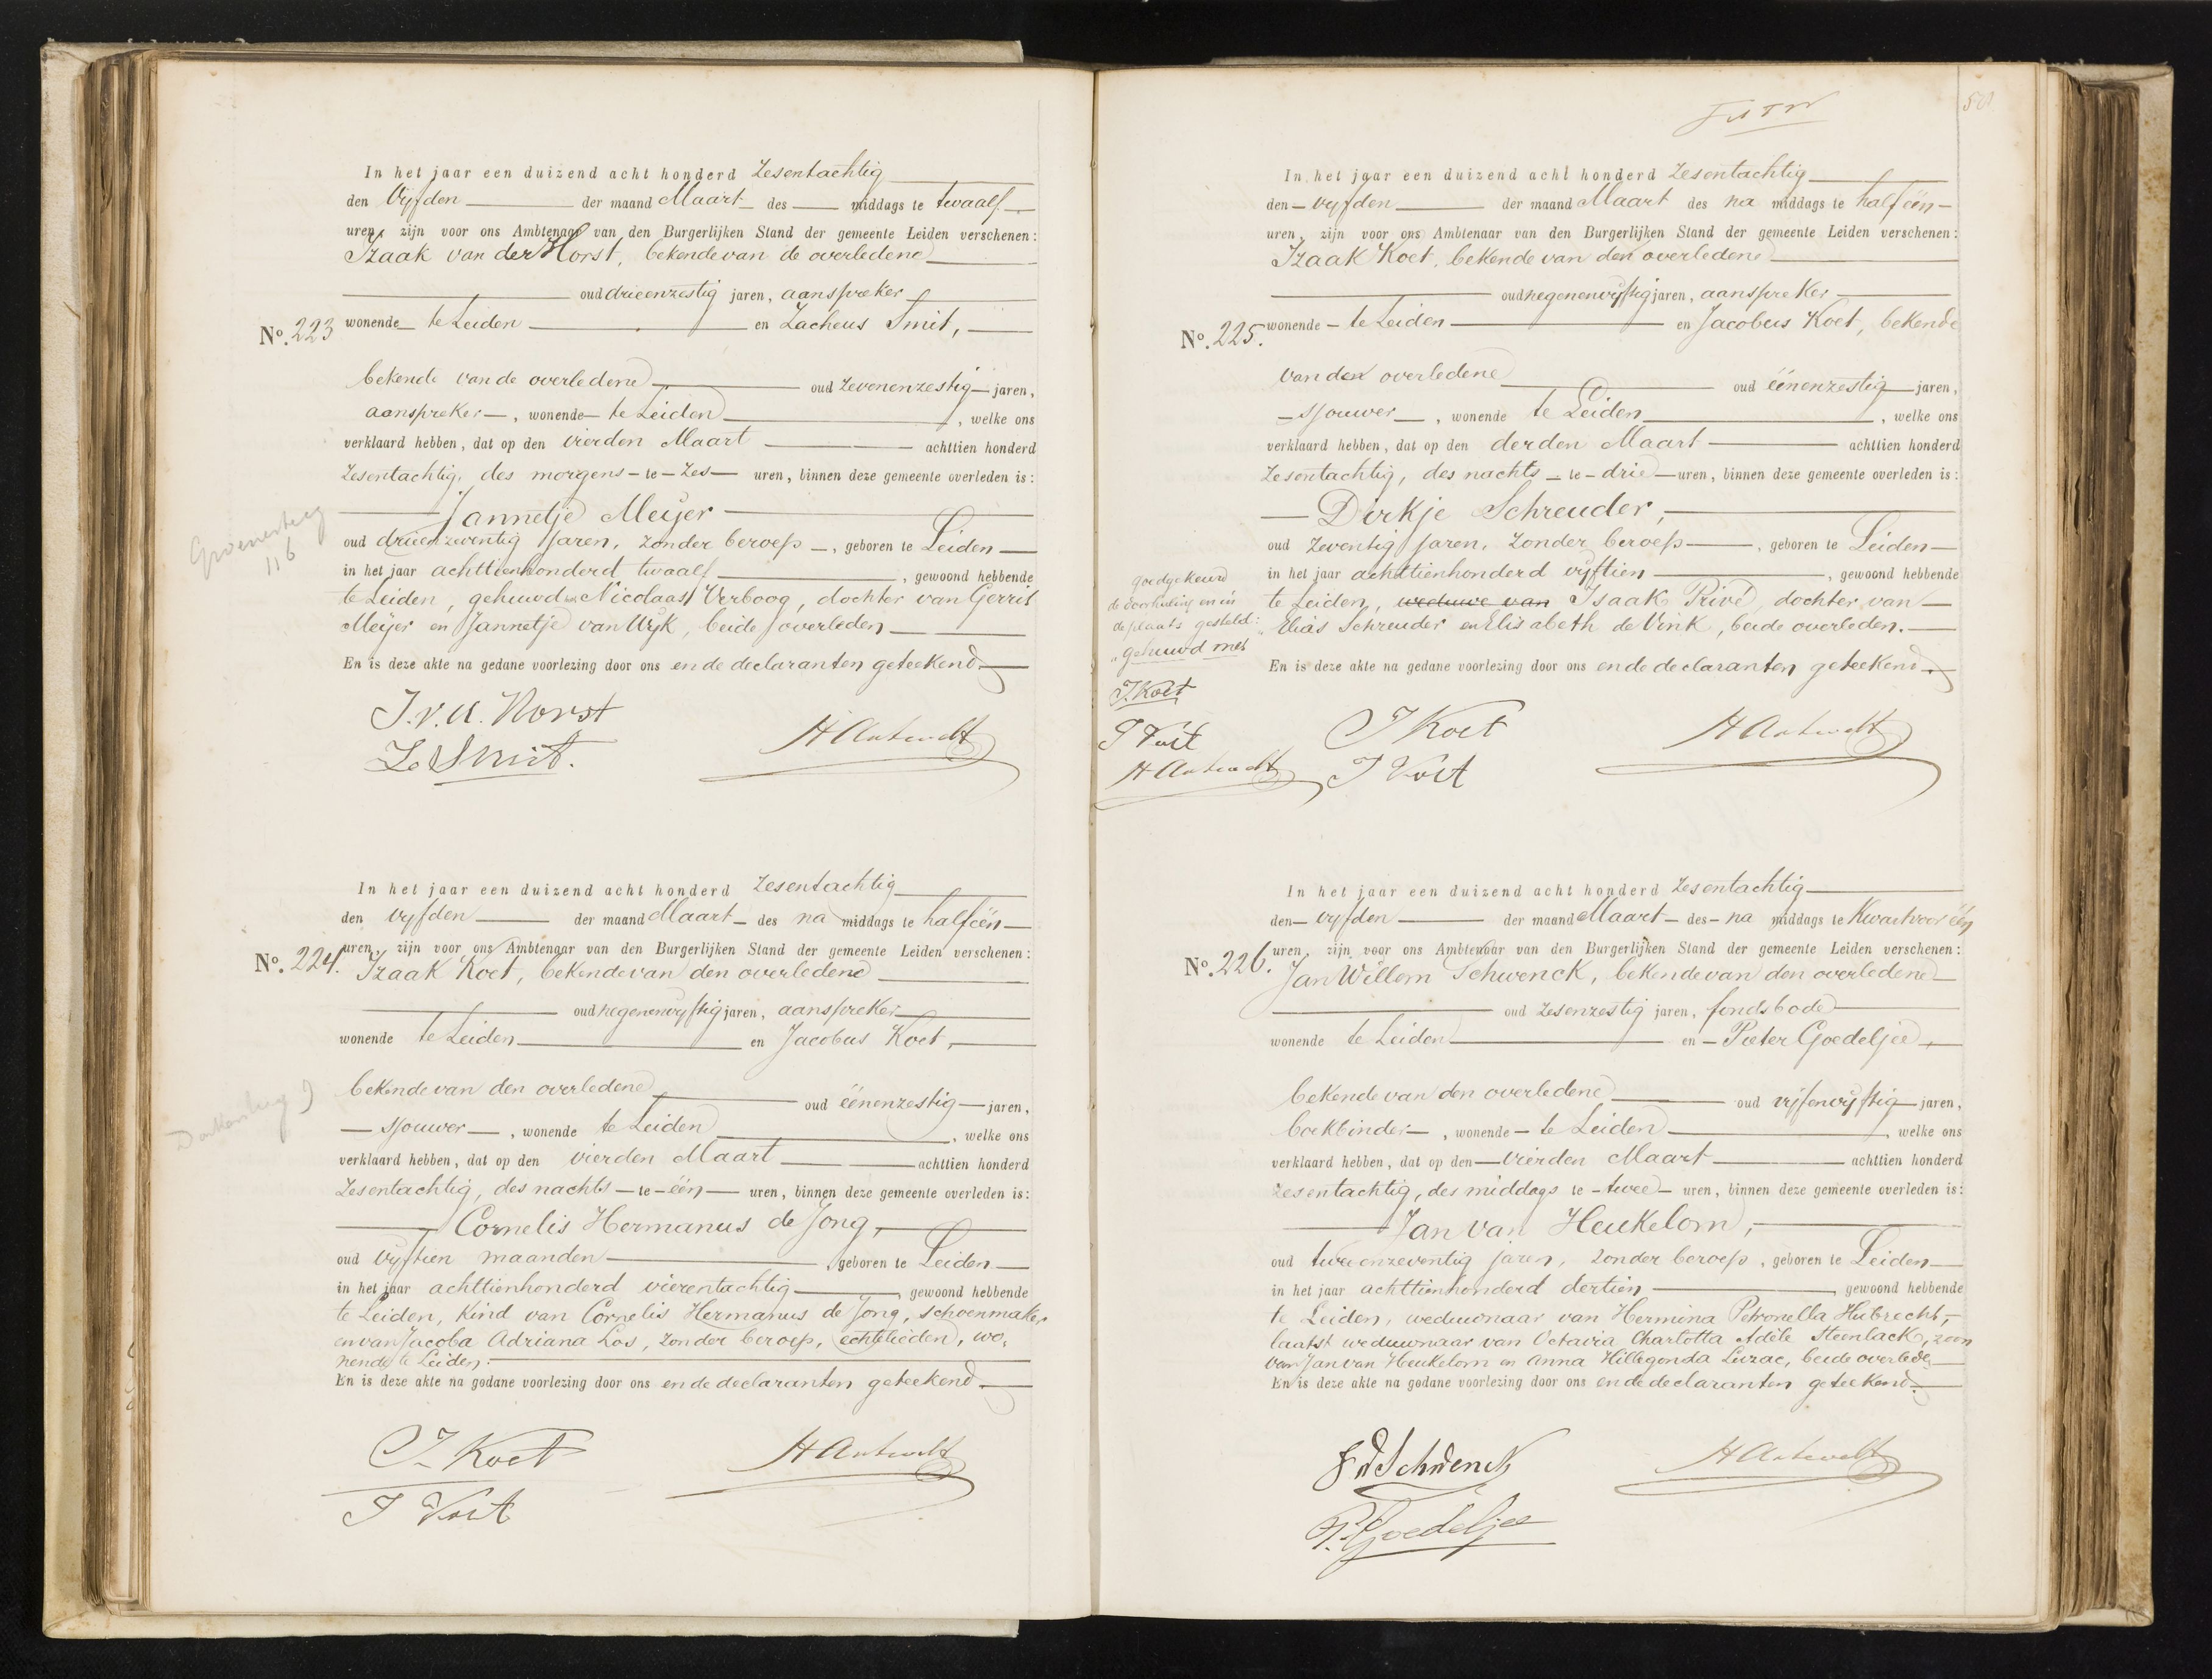 In het jaar een duizend acht honderd Zesentachtig
den Vyfden der maand Maart des middags te twaalf
uren, zijn voor ons Ambtenaar van den Burgerlijken Stand der gemeente Leiden verschenen:
Izaak van der Horst, bekende van de overledene
oud drieenzestig jaren, aanspreker
No. 223 wonende te Leiden en Zacheus Smit,
bekende van de overledene oud zevenenzestig jaren,
aanspreker, wonende te Leiden, welke ons
verklaard hebben, dat op den vierden Maart achttien honderd
Zesentachtig, des morgens te Zes uren, binnen deze gemeente overleden is:
Jannetje Meijer
oud drieenzeventig jaren, zonder beroep, geboren te Leiden
in het jaar achttienhonderd twaalf, gewoond hebbende
te Leiden, gehuwd Nicolaas Verboog, dochter van Gerrit
Meijer en Jannetje van Wyk, beide overleden
En is deze akte na gedane voorlezing door ons en de declaranten geteekend.
116
J. v. d. Horst
Z. Smit.
In het jaar een duizend acht honderd Zesentachtig
den vyfden der maand Maart des na middags te half één
uren, zijn voor ons Ambtenaar van den Burgerlijken Stand der gemeente Leiden verschenen:
No. 224. Izaak Koet, bekende van den overledene
oud negenenvyftig jaren, aanspreker
wonende te Leiden en Jacobus Koet,
bekende van den overledene oud éénenzestig jaren,
sjouwer, wonende te Leiden, welke ons
verklaard hebben, dat op den vierden Maart achttien honderd
Zesentachtig, des nachts te één uren, binnen deze gemeente overleden is:
Cornelis Hermanus de Jong,
oud vyftien maanden, geboren te Leiden
in het jaar achttienhonderd vierentachtig, gewoond hebbende
te Leiden, kind van Cornelis Hermanus de Jong, schoenmaker
en van Jacoba Adriana Los, zonder beroep, echtelieden, wo-
nende te Leiden.
En is deze akte na gedane voorlezing door ons en de declaranten geteekend.
I. Koet
J Koet
In het jaar een duizend acht honderd Zesentachtig
den vyfden der maand Maart des na middags te half één
uren, zijn voor ons Ambtenaar van den Burgerlijken Stand der gemeente Leiden verschenen:
Izaak Koet, bekende van den overledene
oud negenenvyftig jaren, aanspreker
No. 225. wonende te Leiden en Jacobus Koet, bekende
van den overledene oud éénenzestig jaren,
sjouwer, wonende te Leiden, welke ons
verklaard hebben, dat op den derden Maart achttien honderd
Zesentachtig, des nachts te drie uren, binnen deze gemeente overleden is:
Dirkje Schreuder,
oud zeventig jaren, zonder beroep, geboren te Leiden
in het jaar achttienhonderd vyftien, gewoond hebbende
te Leiden, weduwe van Isaak Privé, dochter van
Elias Schreuder en Elisabeth de Vink, beide overleden.
En is deze akte na gedane voorlezing door ons en de declaranten geteekend.
goedgekeurd
de doorhaling en in
de plaats gesteld:
"gehuwd met
I. Koet
J Koet
I Koet
J Koet
In het jaar een duizend acht honderd Zesentachtig
den vyfden der maand Maart des na middags te Kwart voor één
uren, zijn voor ons Ambtenaar van den Burgerlijken Stand der gemeente Leiden verschenen:
No. 226. Jan Willem Schwenck, bekende van den overledene
oud zesenzestig jaren, fondsbode
wonende te Leiden en Pieter Goedeljee,
bekende van den overledene oud vijfenvyftig jaren,
boekbinder, wonende te Leiden, welke ons
verklaard hebben, dat op den vierden Maart achttien honderd
zesentachtig, des middags te twee uren, binnen deze gemeente overleden is:
Jan van Heukelom,
oud tweeenzeventig jaren, zonder beroep, geboren te Leiden
in het jaar achttienhonderd dertien, gewoond hebbende
te Leiden, weduwnaar van Hermina Petronella Hubrecht,
laatst weduwnaar van Octavia Charlotta Adèle Steenlack, zoon
van Jan van Heukelom en Anna Hillegonda Luzac, beide overlede
En is deze akte na gedane voorlezing door ons en de declaranten geteekend.
J W Schwenck
P. Goedeljee